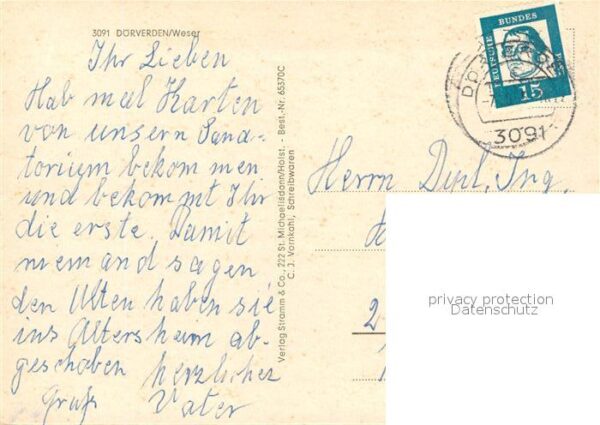 3091 DÖRVERDEN/Weser
Ihr Lieben
Hab mal Karten
von unsern Sana-
torium bekommen
und bekommt Ihr
die erste. Damit
niemand sagen
den Alten haben sie
ins Altersheim ab-
geschoben herzlicher
Gruß Vater
Verlag Stramm & Co., 222 St. Michaelisdonn/Holst. - Best.-Nr. 65370C
C. J. Vornkahl, Schreibwaren
DEUTSCHE BUNDES
15
3091
Herrn Dipl. Ing.
2
privacy protection
Datenschutz